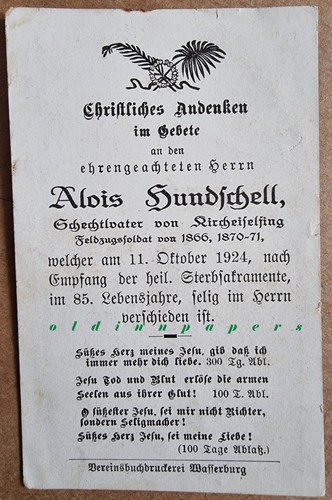 Christliches Andenken
im Gebete
an den
ehrengeachteten Herrn
Alois Hundschell,
Schechtlvater von Kircheiselfing
Feldzugssoldat von 1866, 1870-71,
welcher am 11. Oktober 1924, nach
Empfang der heil. Sterbsakramente,
im 85. Lebensjahre, selig im Herrn
verschieden ist.
oldinnpapers
Süßes Herz meines Jesu, gib daß ich
immer mehr dich liebe. 300 Tg. Abl.
Jesu Tod und Blut erlöse die armen
Seelen aus ihrer Glut! 100 T. Abl.
O süßester Jesu, sei mir nicht Richter,
sondern Seligmacher!
Süßes Herz Jesu, sei meine Liebe!
(100 Tage Ablaß.)
Vereinsbuchdruckerei Wasserburg